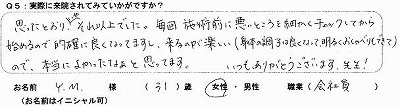 Q5：実際に来院されてみていかがですか？
思ったとおり、いやそれ以上でした。毎回施術前に悪いところを細かくチェックしてから
始めるので的確に良くなってますし、来るのが楽しい（身体の調子は良くなって明るくおしゃべりもできて）
ので、本当によかったなぁと思ってます。
いつもありがとうございます、先生！
お名前 Y.M. 様 （31）歳 女性・男性 職業（会社員）
（お名前はイニシャル可）